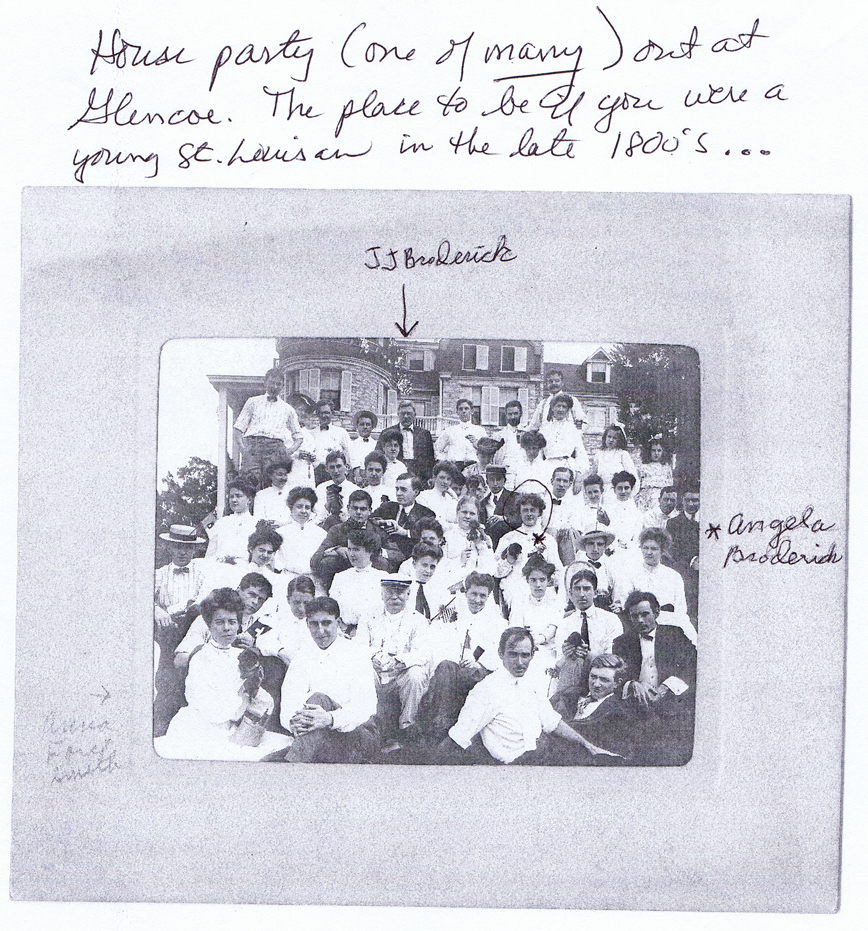 House party (one of many) out at
Glencoe. The place to be if you were a
young St. Louisan in the late 1800's...
JJ Broderick
* Angela
Broderick
Smith